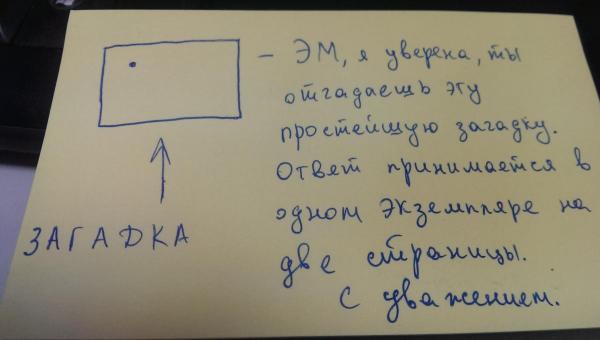 — ЭМ, я уверена, ты
отгадаешь эту
простейшую загадку.
Ответ принимается в
одном экземпляре на
две страницы.
С уважением.
ЗАГАДКА